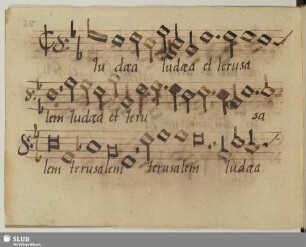 Iu dæa Iudæa et Ierusa
lem Iudæa et Ieru sa
lem Ierusalem Ierusalem Iudæa
SLUB